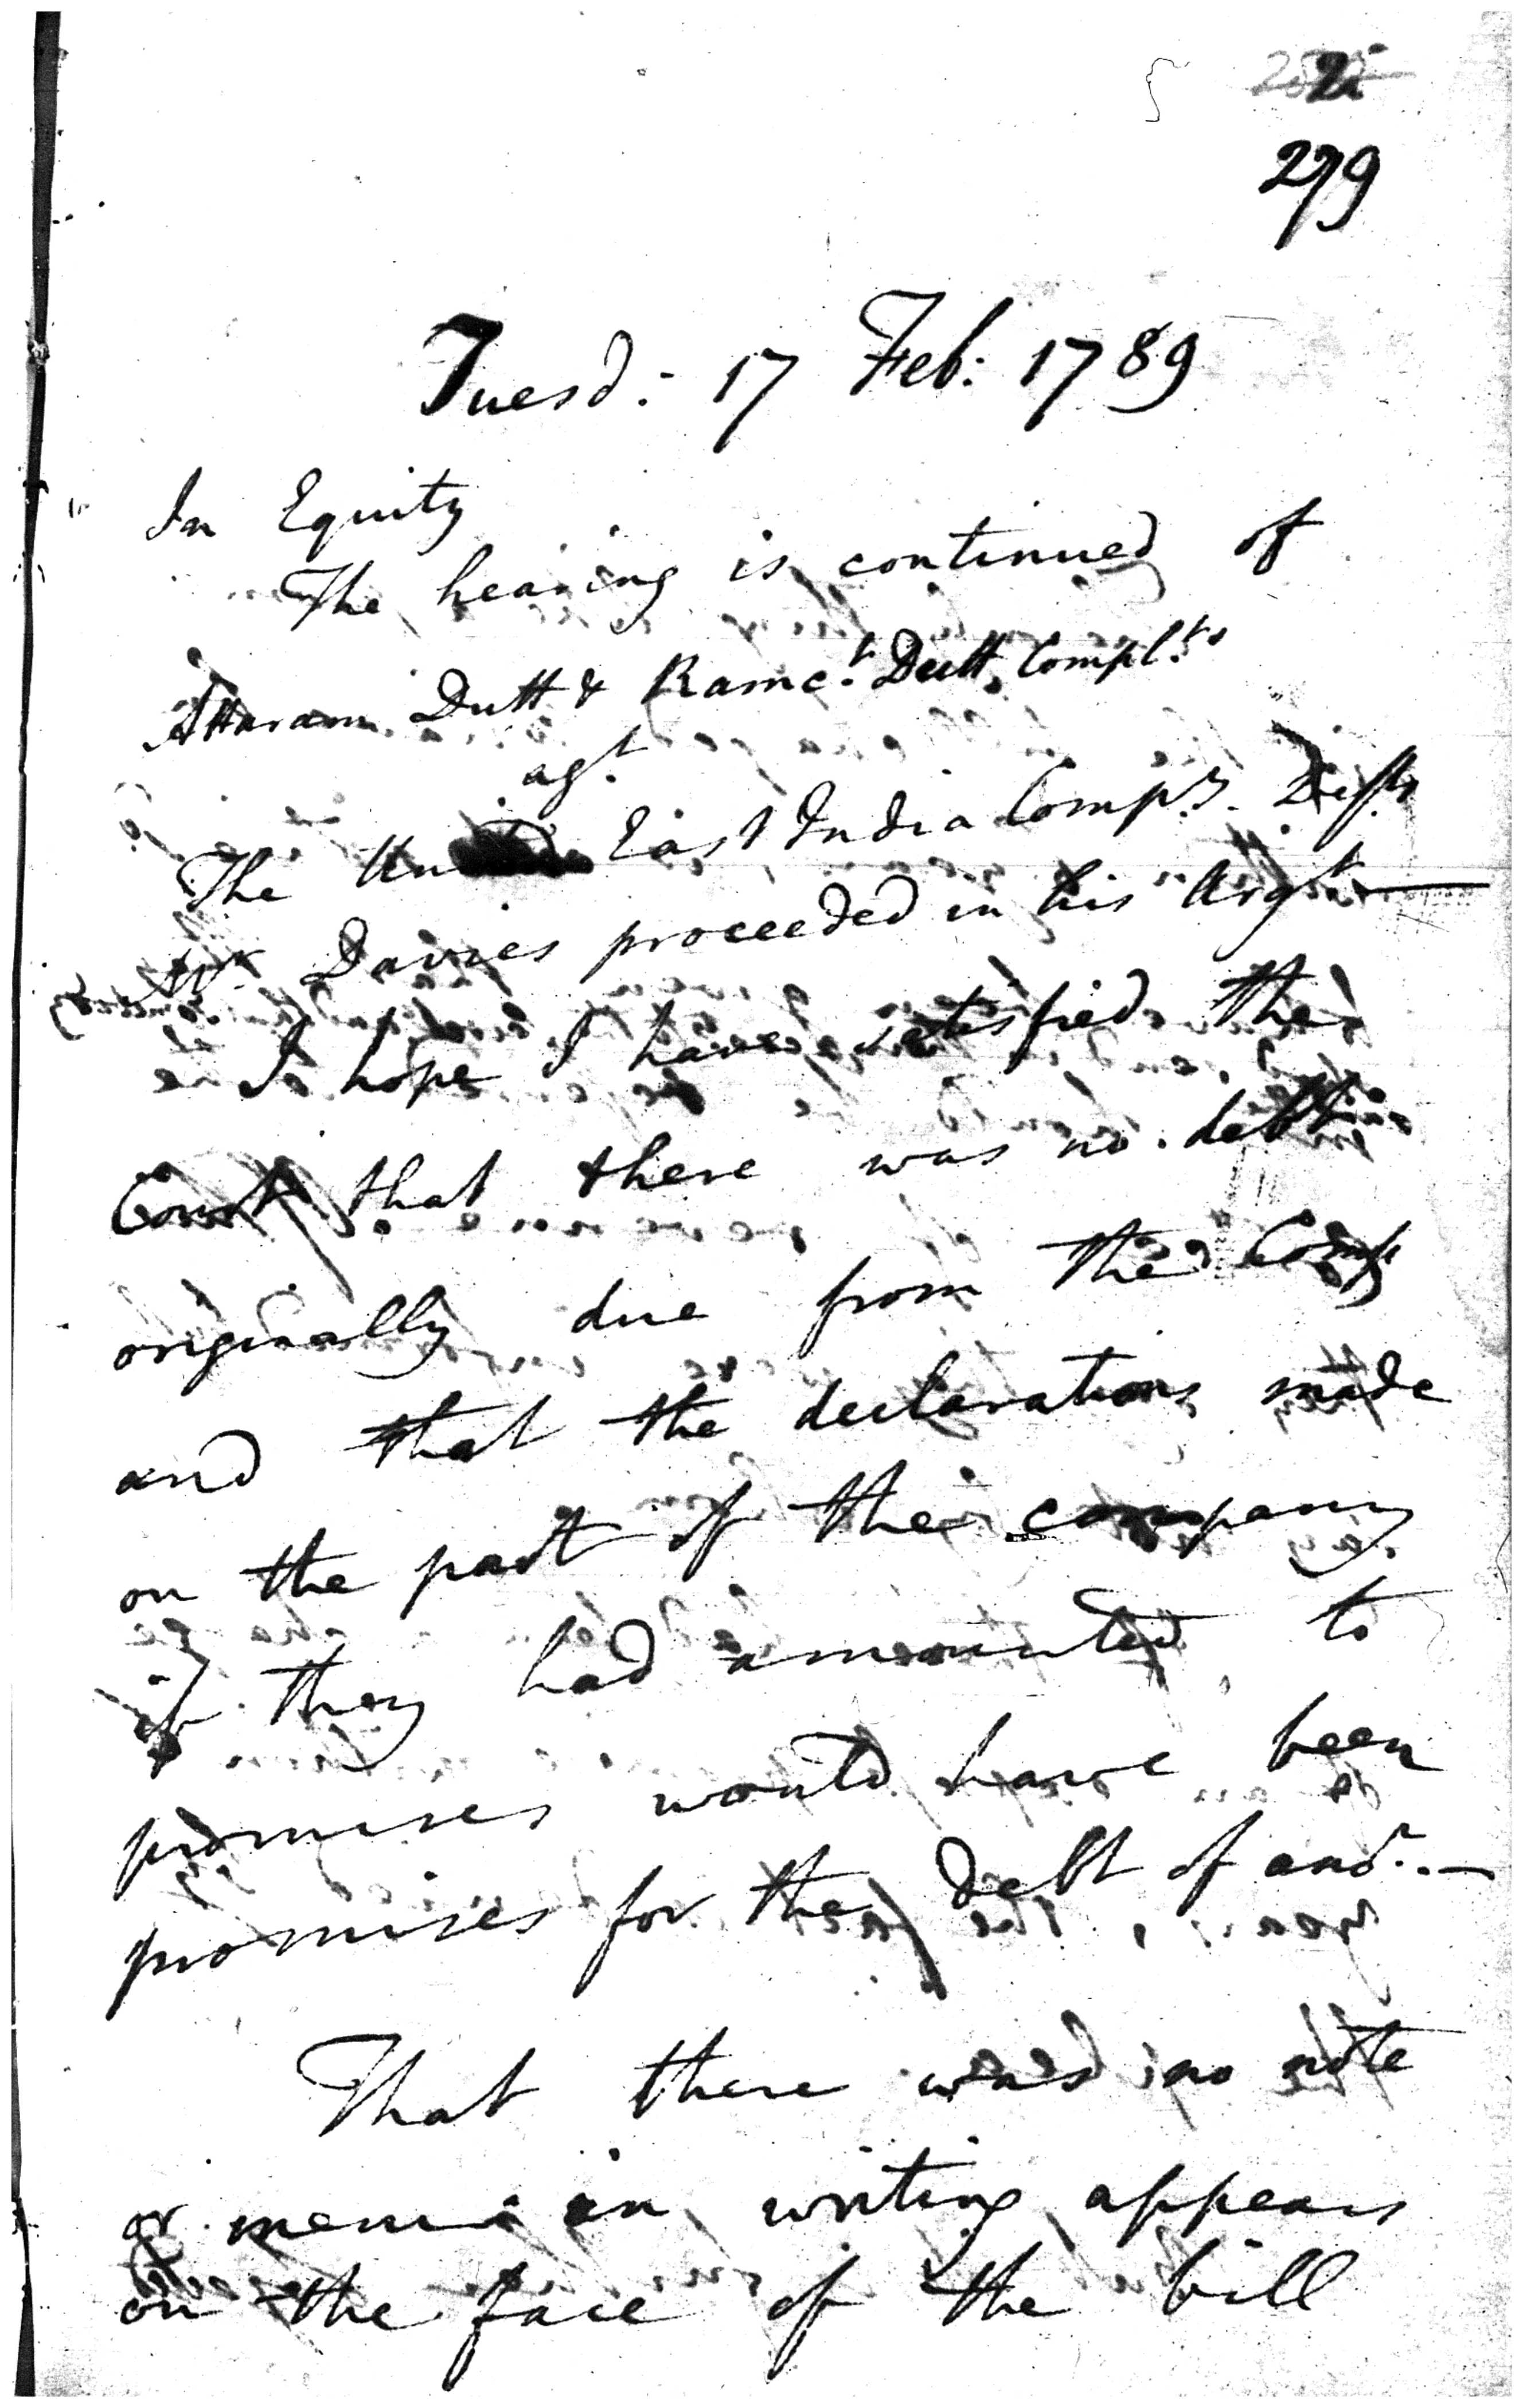 279
Tuesd: 17 Feb: 1789
In Equity
The hearing is continued of
Attaram Dutt & Ramc.t Dutt Compl.ts
ag.t
The East India Comp.y Defts
Mr Davies proceeded in his Arg.t
I hope I have satisfied the
Court that there was no debt
originally due from the Comp
and that the declarations made
on the part of the company
if they had amounted to
promises would have been
promises for the debt of anor.—
That there was no note
or mem: in writing appears
on the face of the bill